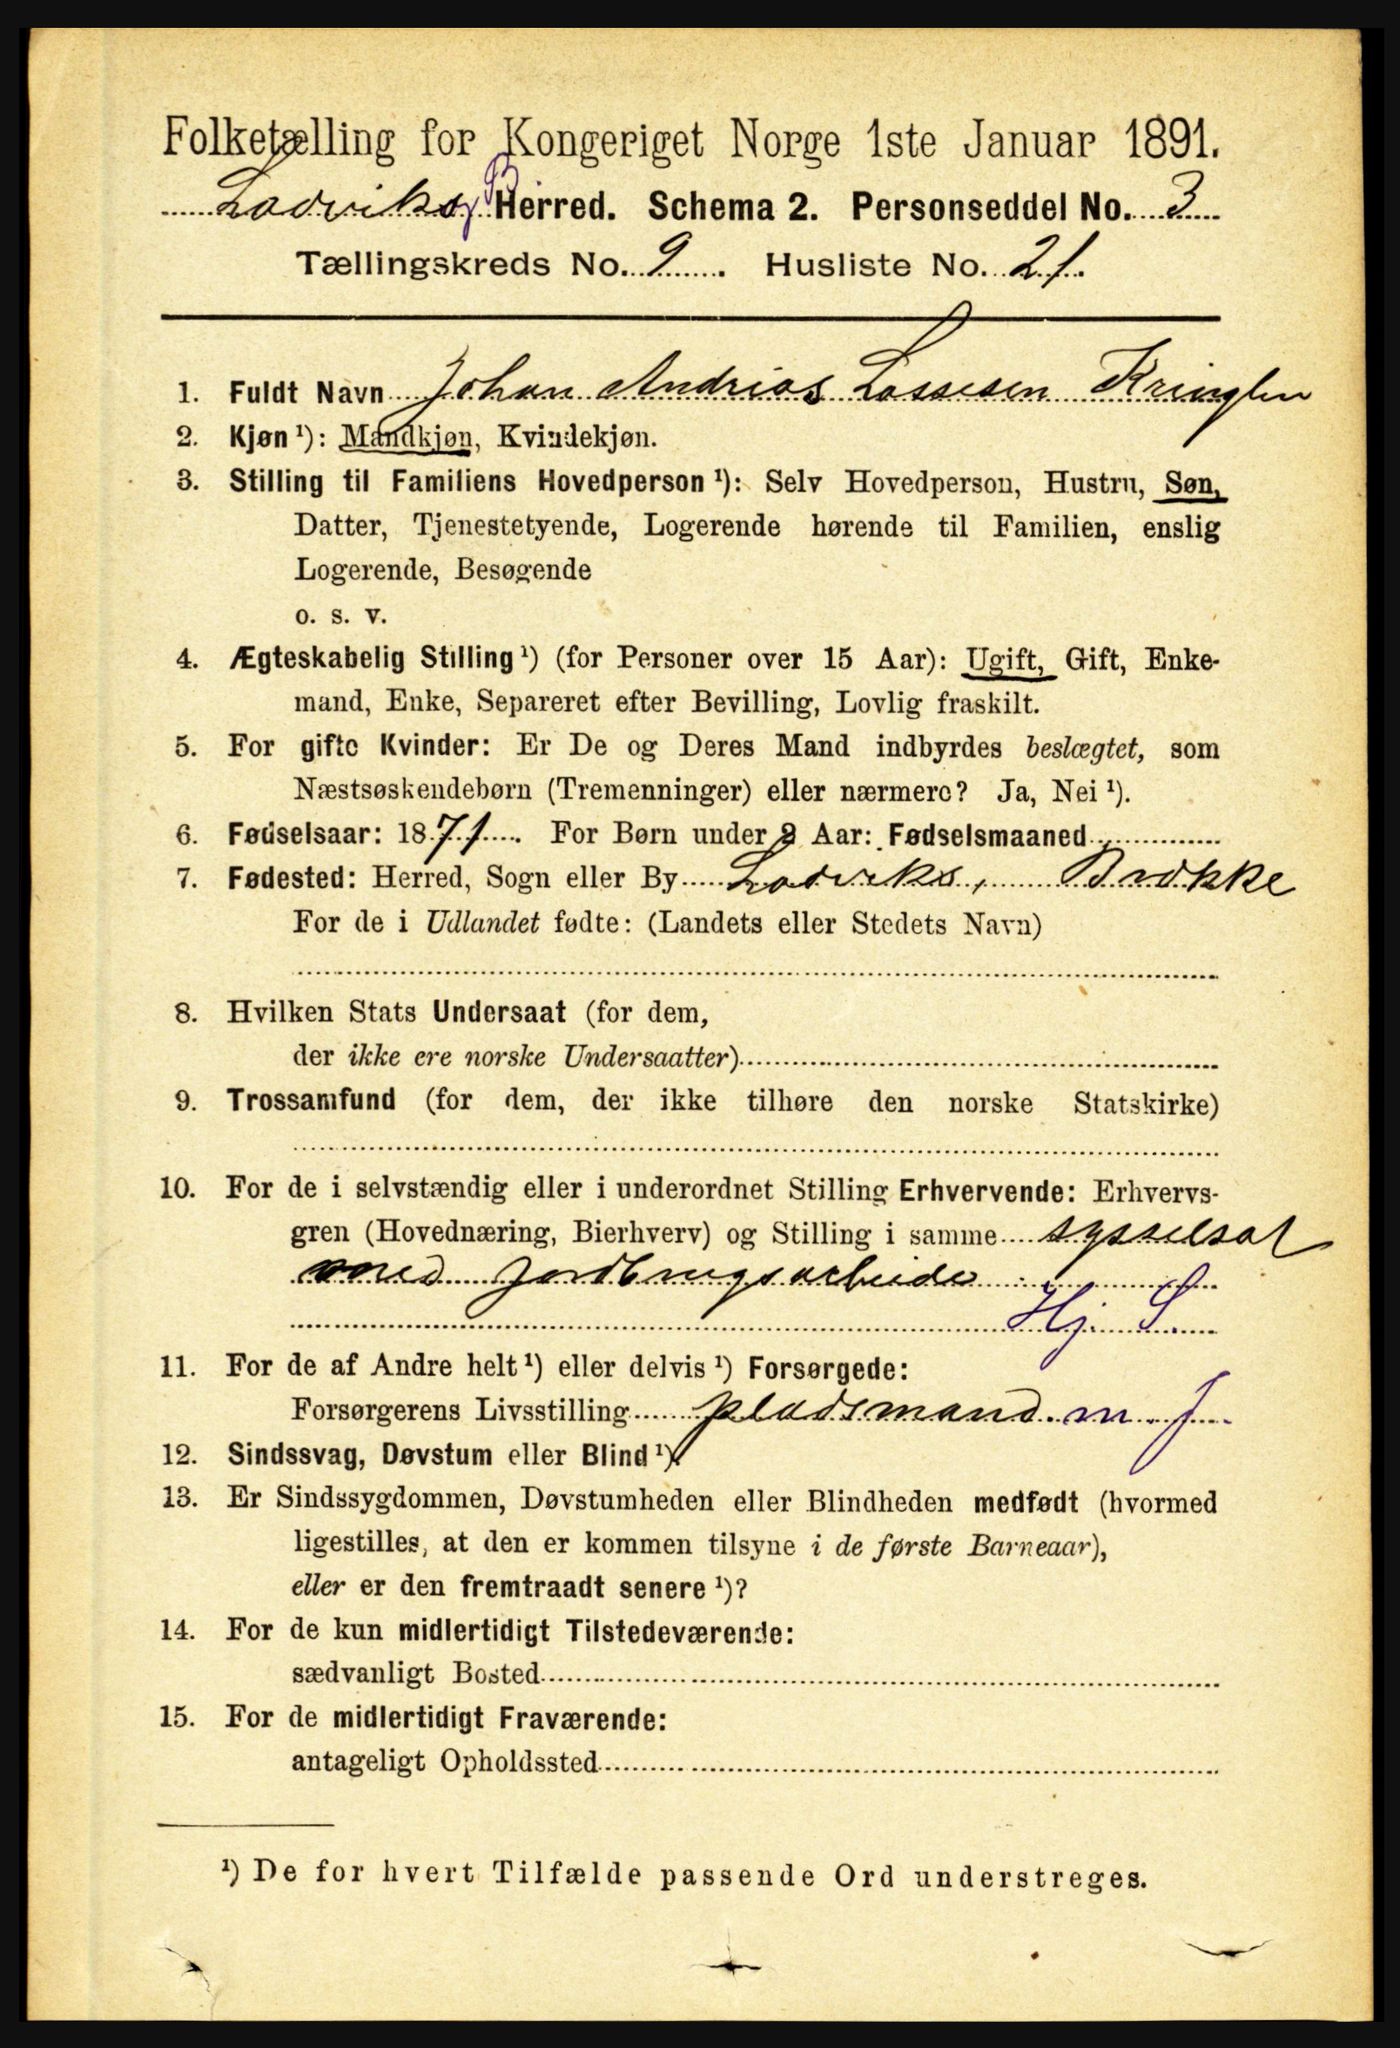 Folketælling for Kongeriget Norge 1ste Januar 1891.
Ladviks og B Herred. Schema 2. Personseddel No. 3
Tællingskreds No. 9. Husliste No. 21.
1. Fuldt Navn Johan Andrias Lassesen Kringlen
2. Kjøn ¹): Mandkjøn, Kvindekjøn.
3. Stilling til Familiens Hovedperson ¹): Selv Hovedperson, Hustru, Søn,
Datter, Tjenestetyende, Logerende hørende til Familien, enslig
Logerende, Besøgende
o. s. v.
4. Ægteskabelig Stilling ¹) (for Personer over 15 Aar): Ugift, Gift, Enke-
mand, Enke, Separeret efter Bevilling, Lovlig fraskilt.
5. For gifte Kvinder: Er De og Deres Mand indbyrdes beslægtet, som
Næstsøskendebørn (Tremenninger) eller nærmere? Ja, Nei ¹).
6. Fødselsaar: 1871. For Børn under 2 Aar: Fødselsmaaned
7. Fødested: Herred, Sogn eller By Ladviks, Brække
For de i Udlandet fødte: (Landets eller Stedets Navn)
8. Hvilken Stats Undersaat (for dem,
der ikke ere norske Undersaatter)
9. Trossamfund (for dem, der ikke tilhøre den norske Statskirke)
10. For de i selvstændig eller i underordnet Stilling Erhvervende: Erhvervs-
gren (Hovednæring, Bierhverv) og Stilling i samme sysselsat
med jordbrugsarbeide
Hj. S.
11. For de af Andre helt ¹) eller delvis ¹) Forsørgede:
Forsørgerens Livsstilling pladsmand m. J
12. Sindssvag, Døvstum eller Blind ¹).
13. Er Sindssygdommen, Døvstumheden eller Blindheden medfødt (hvormed
ligestilles, at den er kommen tilsyne i de første Barneaar),
eller er den fremtraadt senere ¹)?
14. For de kun midlertidigt Tilstedeværende:
sædvanligt Bosted
15. For de midlertidigt Fraværende:
antageligt Opholdssted
¹) De for hvert Tilfælde passende Ord understreges.